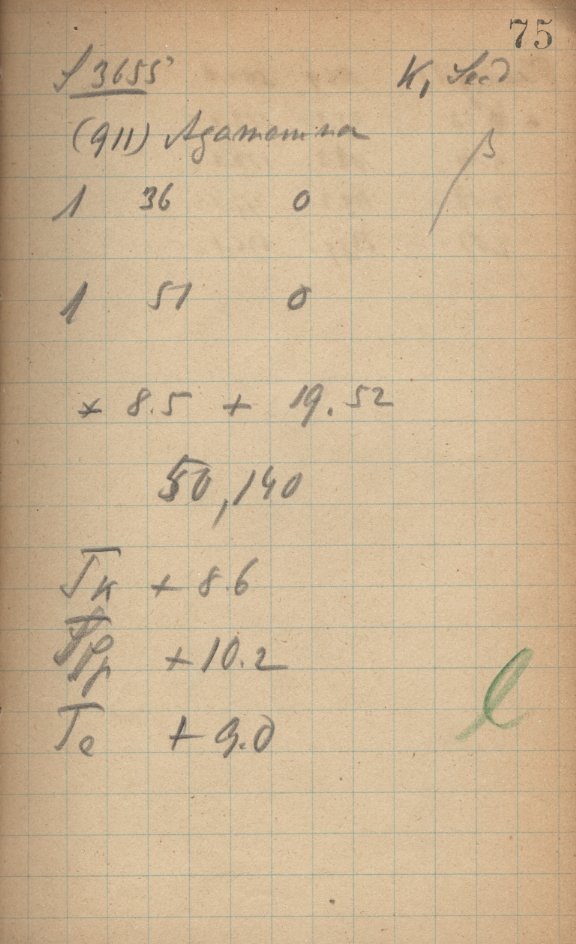 75
S 3655 K, Seed
(911) Agamemna
β
1 36 0
1 51 0
+ 8.5 + 19.52
50,140
Tk + 8.6
+ 10.2
Te + 9.0